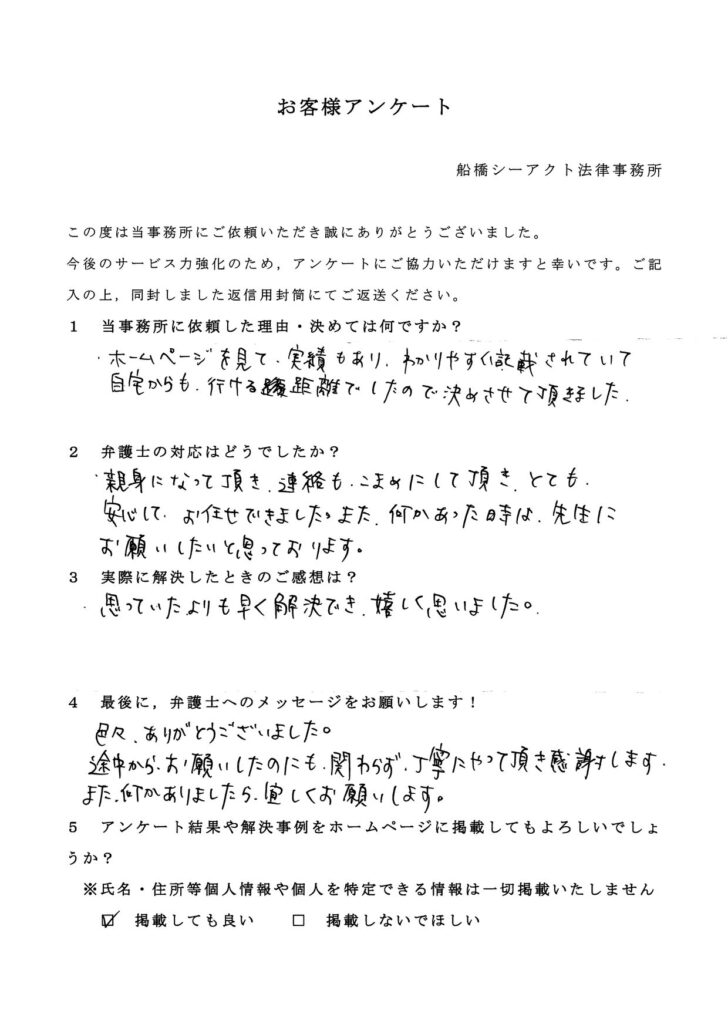 お客様アンケート
船橋シーアクト法律事務所
この度は当事務所にご依頼いただき誠にありがとうございました。
今後のサービス力強化のため，アンケートにご協力いただけますと幸いです。ご記
入の上，同封しました返信用封筒にてご返送ください。
１　当事務所に依頼した理由・決めては何ですか？
・ホームページを見て、実績もあり、わかりやすく記載されていて
自宅からも、行ける距離でしたので決めさせて頂きました。
２　弁護士の対応はどうでしたか？
・親身になって頂き、連絡も、こまめにして頂き、とても、
安心して、お任せできました。また、何かあった時は、先生に
お願いしたいと思っております。
３　実際に解決したときのご感想は？
・思っていたよりも早く解決でき、嬉しく思いました。
４　最後に，弁護士へのメッセージをお願いします！
色々、ありがとうございました。
途中から、お願いしたのにも、関わらず、丁寧にやって頂き感謝します。
また、何かありましたら、宜しくお願いします。
５　アンケート結果や解決事例をホームページに掲載してもよろしいでしょ
うか？
※氏名・住所等個人情報や個人を特定できる情報は一切掲載いたしません
☑　掲載しても良い　　□　掲載しないでほしい